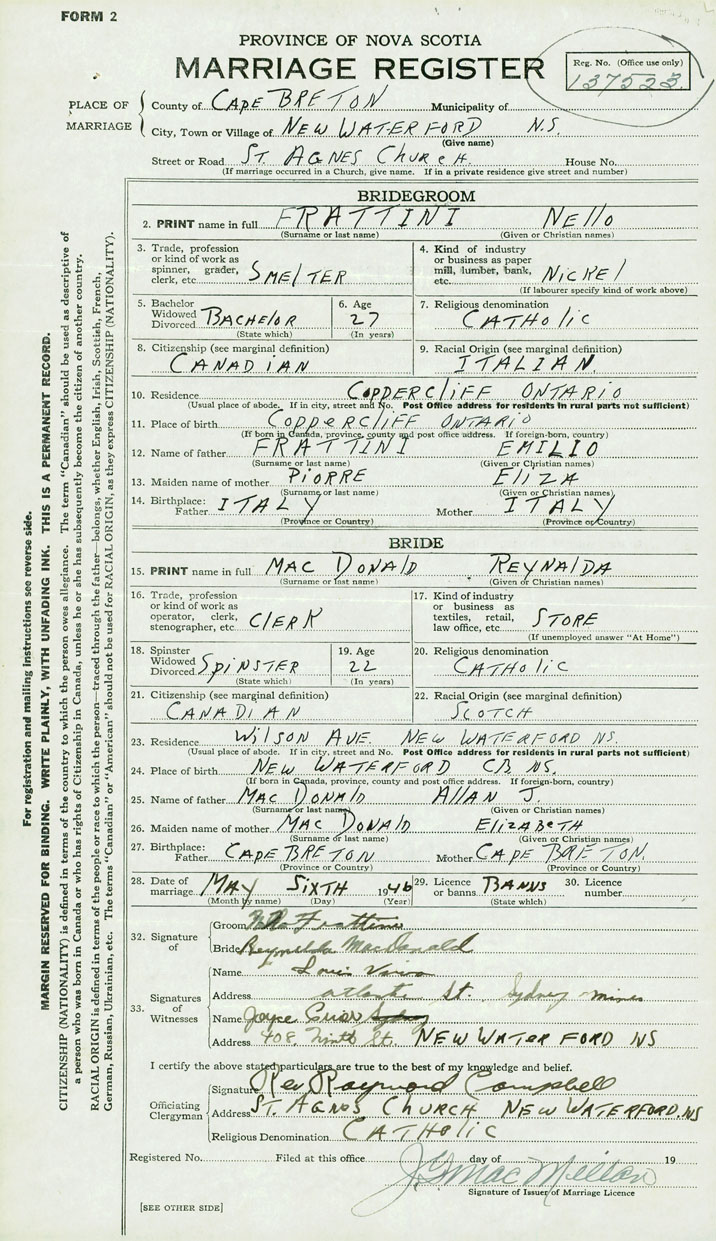 FORM 2
PROVINCE OF NOVA SCOTIA
MARRIAGE REGISTER
Reg. No. (Office use only)
137523
PLACE OF MARRIAGE
County of CAPE BRETON Municipality of
City, Town or Village of NEW WATERFORD N.S.
(Give name)
Street or Road ST. AGNES CHURCH. House No.
(If marriage occurred in a Church, give name. If in a private residence give street and number)
BRIDEGROOM
2. PRINT name in full FRATTINI NEllo
(Surname or last name) (Given or Christian names)
3. Trade, profession or kind of work as spinner, grader, clerk, etc. SMELTER
4. Kind of industry or business as paper mill, lumber, bank, etc. NICKEl
(If labourer specify kind of work above)
5. Bachelor Widowed Divorced BACHELOR
(State which)
6. Age 27
(In years)
7. Religious denomination CATHolic
8. Citizenship (see marginal definition) CANADIAN
9. Racial Origin (see marginal definition) ITALIAN.
10. Residence COPPERCLIFF ONTARIO
(Usual place of abode. If in city, street and No. Post Office address for residents in rural parts not sufficient)
11. Place of birth COPPERCLIFF ONTARIO
(If born in Canada, province, county and post office address. If foreign-born, country)
12. Name of father FRATTINI EMILIO
(Surname or last name) (Given or Christian names)
13. Maiden name of mother PIORRE ElIZA
(Surname or last name) (Given or Christian names)
14. Birthplace: Father ITALY Mother ITALY
(Province or Country) (Province or Country)
BRIDE
15. PRINT name in full MAC DONAlD REYNALDA
(Surname or last name) (Given or Christian names)
16. Trade, profession or kind of work as operator, clerk, stenographer, etc. ClERK
17. Kind of industry or business as textiles, retail, law office, etc. STORE
(If unemployed answer "At Home")
18. Spinster Widowed Divorced SPINSTER
(State which)
19. Age 22
(In years)
20. Religious denomination CATHOlic
21. Citizenship (see marginal definition) CANADIAN
22. Racial Origin (see marginal definition) SCOTCH
23. Residence WILSON AVE. NEW WATERFORD NS.
(Usual place of abode. If in city, street and No. Post Office address for residents in rural parts not sufficient)
24. Place of birth NEW WATERFORD CB NS.
(If born in Canada, province, county and post office address. If foreign-born, country)
25. Name of father MAC DONAlD AllAN J.
(Surname or last name) (Given or Christian names)
26. Maiden name of mother MAC DONAlD ElIZABETH
(Surname or last name) (Given or Christian names)
27. Birthplace: Father CAPE BRETON Mother CAPE BRETON.
(Province or Country) (Province or Country)
28. Date of marriage MAY SIXTH 1946
(Month by name) (Day) (Year)
29. Licence or banns BANNS
(State which)
30. Licence number
32. Signature of
Groom Nello Frattini
Bride Reynalda MacDonald
33. Signatures of Witnesses
Name Louis
Address atlantic St. Sydney mines
Name Joyce
Address 408 Ninth St. NEW WATERFORD NS
I certify the above stated particulars are true to the best of my knowledge and belief.
Officiating Clergyman
Signature Rev Raymond Campbell
Address ST. AGNES CHURCH NEW WATERFORD. NS
Religious Denomination CATHolic
Registered No. Filed at this office day of 19
J. G. MacMillan
Signature of Issuer of Marriage Licence
[SEE OTHER SIDE]
For registration and mailing instructions see reverse side.
MARGIN RESERVED FOR BINDING. WRITE PLAINLY, WITH UNFADING INK. THIS IS A PERMANENT RECORD.
CITIZENSHIP (NATIONALITY) is defined in terms of the country to which the person owes allegiance. The term "Canadian" should be used as descriptive of
a person who was born in Canada or who has rights of Citizenship in Canada, unless he or she has subsequently become the citizen of another country.
RACIAL ORIGIN is defined in terms of the people or race to which the person—traced through the father—belongs, whether English, Irish, Scottish, French,
German, Russian, Ukrainian, etc. The terms "Canadian" or "American" should not be used for RACIAL ORIGIN, as they express CITIZENSHIP (NATIONALITY).